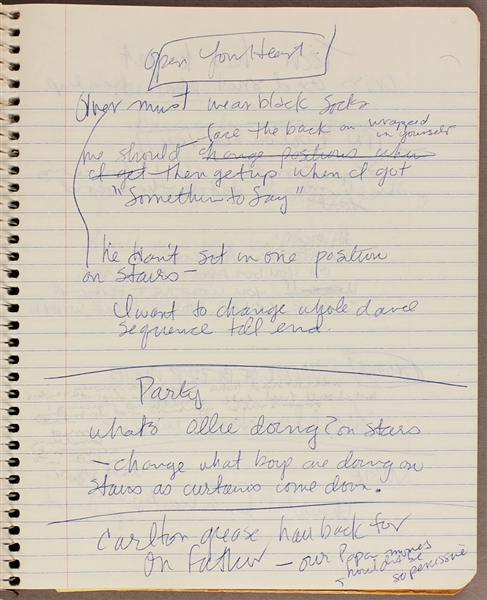 Open Your Heart.
Oliver must wear black socks
face the back on wrapped in yourself
me should change positions when
I get then get up when I got
"Something to Say"
he don't sit in one position
on stairs –
I want to change whole dance
sequence till end.
Party
what's Ollie doing? on stairs
– change what boys are doing on
stairs as curtains come down.
Carlton grease hair back for
On Father – our Papa moves
should be